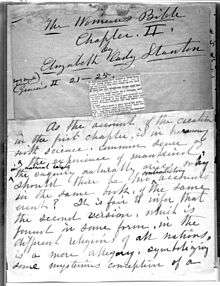 The Woman's Bible
Chapter II.
by
Elizabeth Cady Stanton
Genesis II. 21–25.
As the account of the creation
in the first chapter, is in harmony
with science, common sense, &
the experience of mankind,
the enquiry naturally arises why
should there be
accounts
in the same book, of the same
event? It is fair to infer that
the second version, which is
found in some form, in the
different religions of all nations,
is a mere allegory, symbolizing
some mysterious conception of a